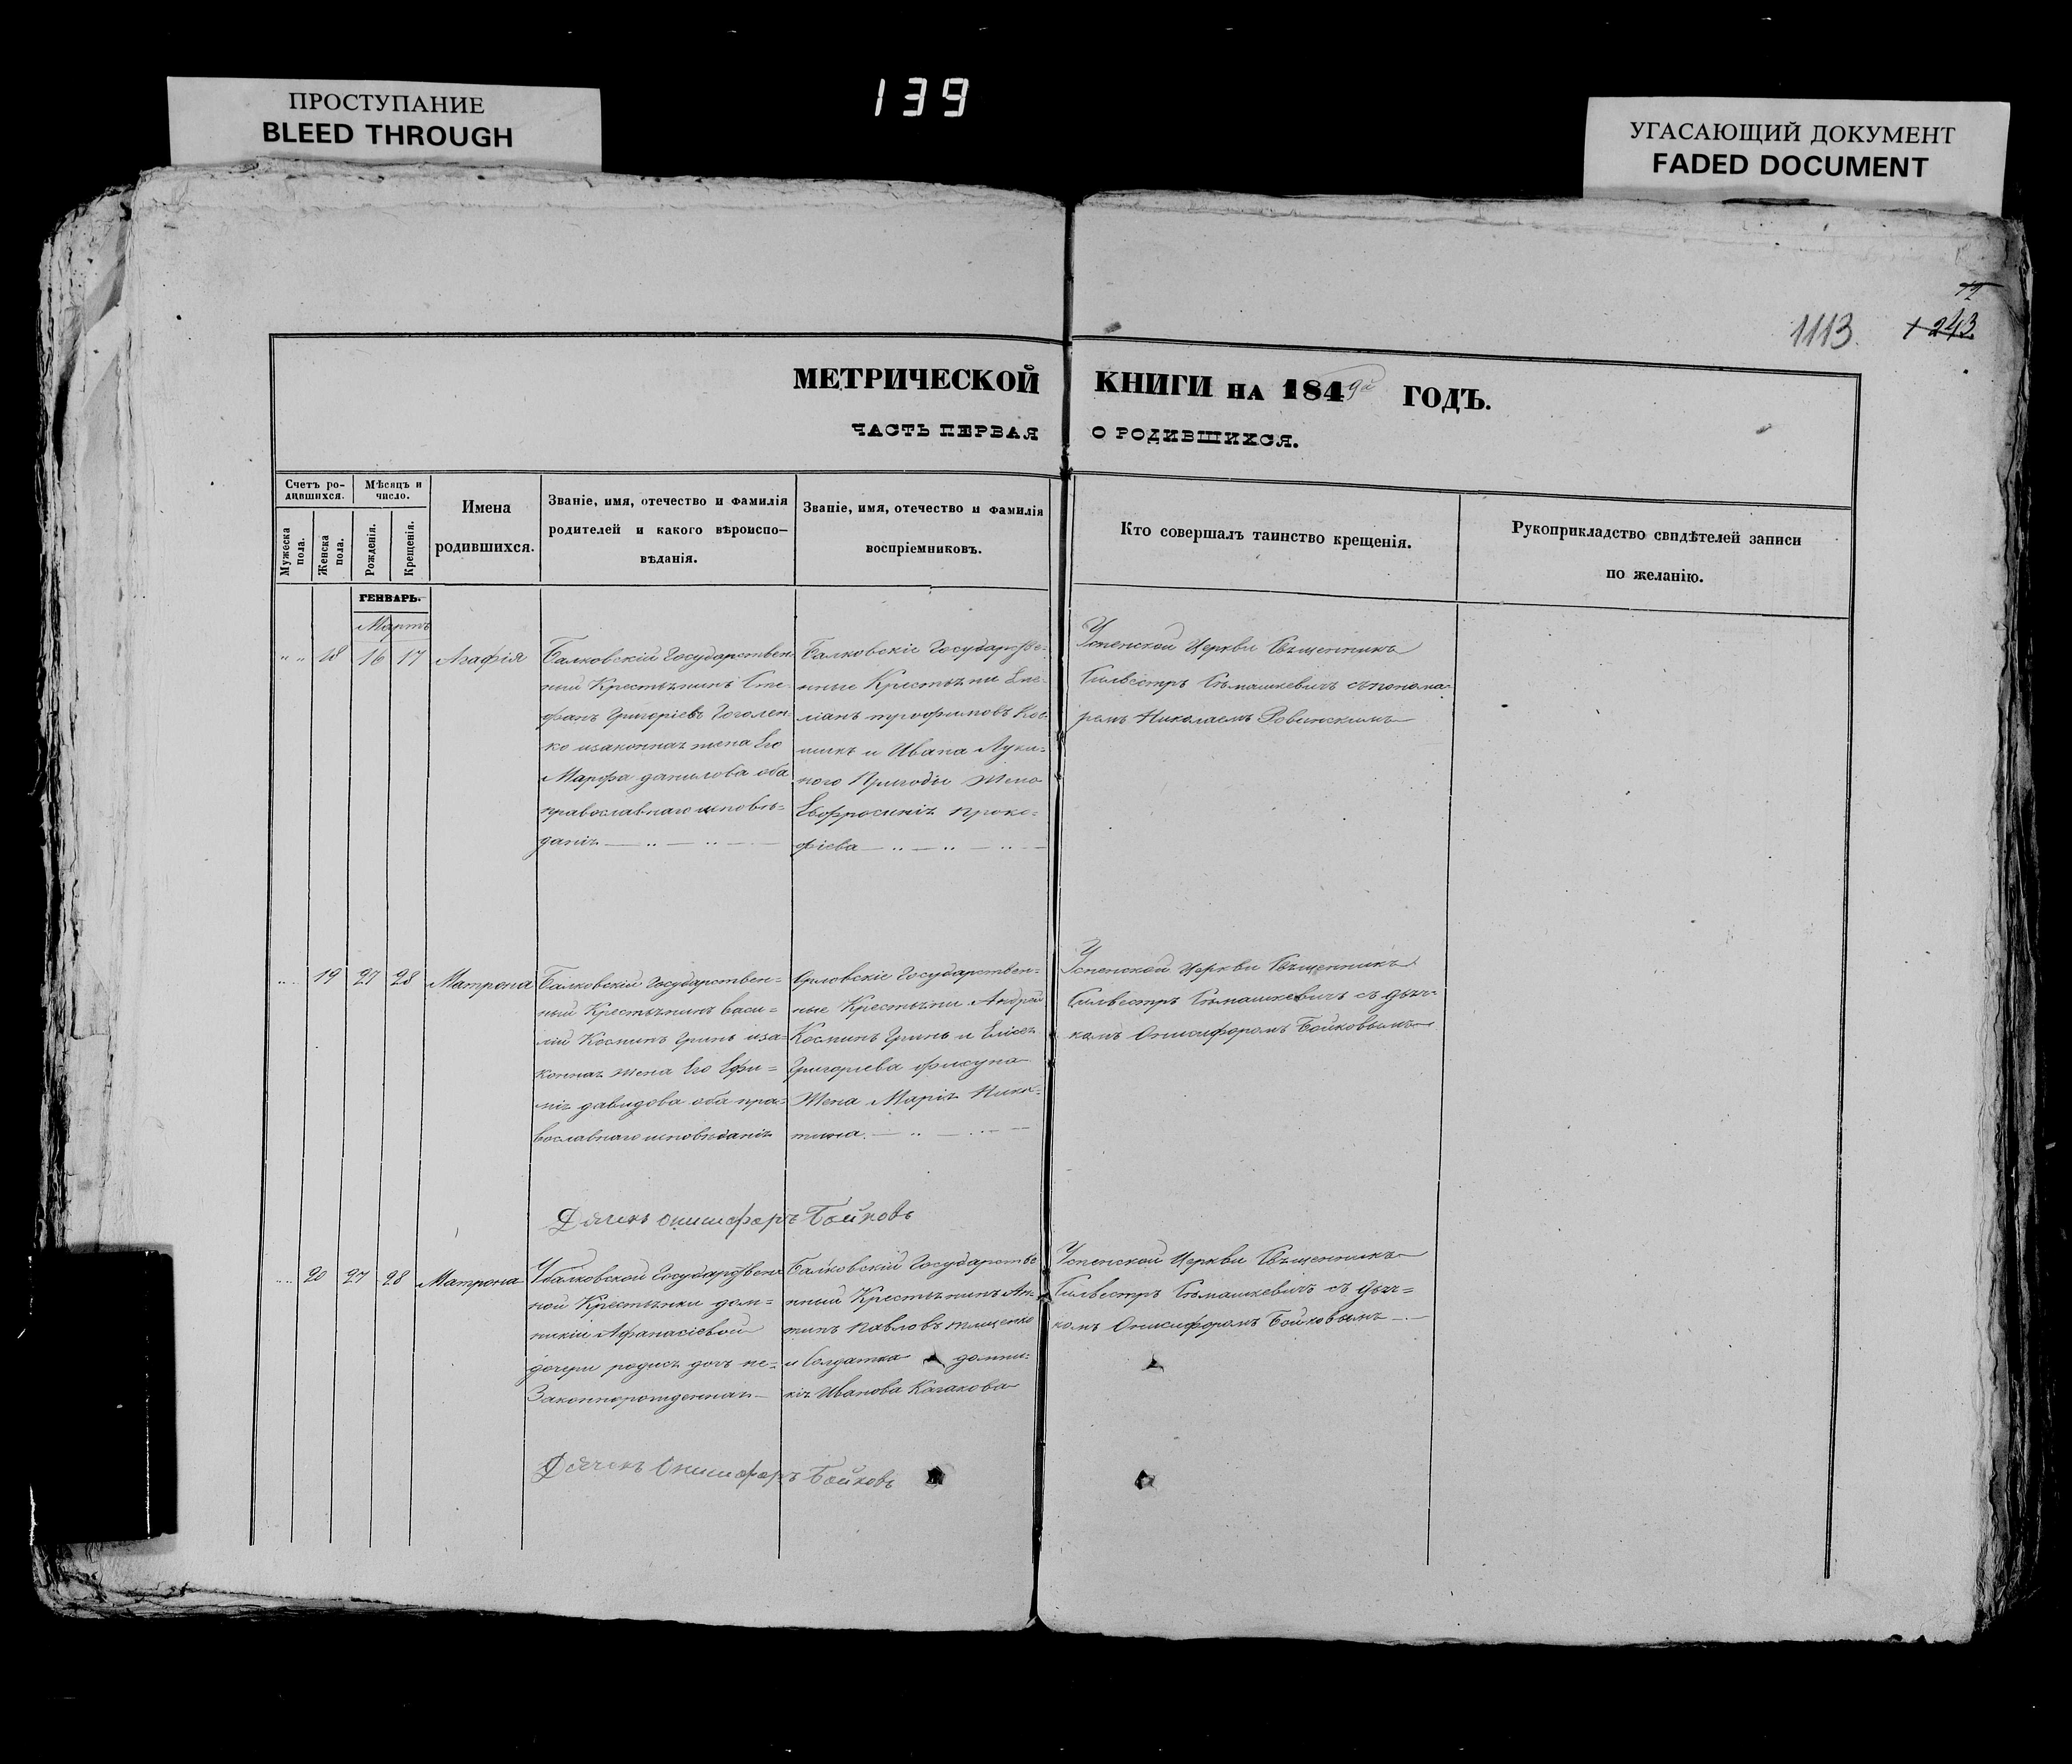 139
ПРОСТУПАНИЕ
BLEED THROUGH
УГАСАЮЩИЙ ДОКУМЕНТ
FADED DOCUMENT
1113.
1243
МЕТРИЧЕСКОЙ КНИГИ НА 1849 ГОДЪ.
ЧАСТЬ ПЕРВАЯ О РОДИВШИХСЯ.
Счетъ ро-
дившихся.
Мѣсяцъ и
число.
Мужеска
пола.
Женска
пола.
Рожденія.
Крещенія.
Имена
родившихся.
Званіе, имя, отечество и фамилія
родителей и какого вѣроиспо-
вѣданія.
Званіе, имя, отечество и фамилія
воспріемниковъ.
Кто совершалъ таинство крещенія.
Рукоприкладство свидѣтелей записи
по желанію.
ГЕНВАРЬ.
Мартъ
18 16 17 Агафія
Балковскій Государствен-
ный Крестьянинъ Сте-
фанъ Григоріевъ Гоголен-
ко изаконная жена Его
Марфа данилова оба
православнаго исповѣ-
данія
Балковскіе Государстве-
нные Крестьяне
трофимовъ
и Ивана Луки-
ного Пригоды Жена
Евфросинія Проко-
фіева
Успенской Церкви Священникъ
Сильвестръ Сѣмашкевичъ съ понома-
ремъ Николаемъ Ровинскимъ
19 27 28 Матрона
Балковскій Государствен-
ный Крестьянинъ Васи-
лій Косминъ Гринь иза-
конная жена Его Ефи-
мія давидова оба пра-
вославнаго исповѣданія
Орловскіе Государствен-
ные Крестьяне Андрей
Косминъ Гринь и Елисея
Григоріева фисуна
Жена Марія Ники-
тина
Успенской Церкви Священникъ
Сильвестръ Сѣмашкевичъ съ дьяч-
комъ Онисифоромъ Бойковымъ
Дячекъ Онисифоръ Бойковъ
20 27 28 Матрона
Убалковской Государствен-
ной Крестьянки дом-
никіи Афанасіевой
дочери родися дочь не-
Законнорожденная
Балковскій Государстве-
нный Крестьянинъ Ан-
типъ Павловъ тищенко
и Солдатка домни-
кія Иванова Казакова
Успенской Церкви Священникъ
Сильвестръ Сѣмашкевичъ съ дьяч-
комъ Онисифоромъ Бойковымъ
Дячекъ Онисифоръ Бойковъ